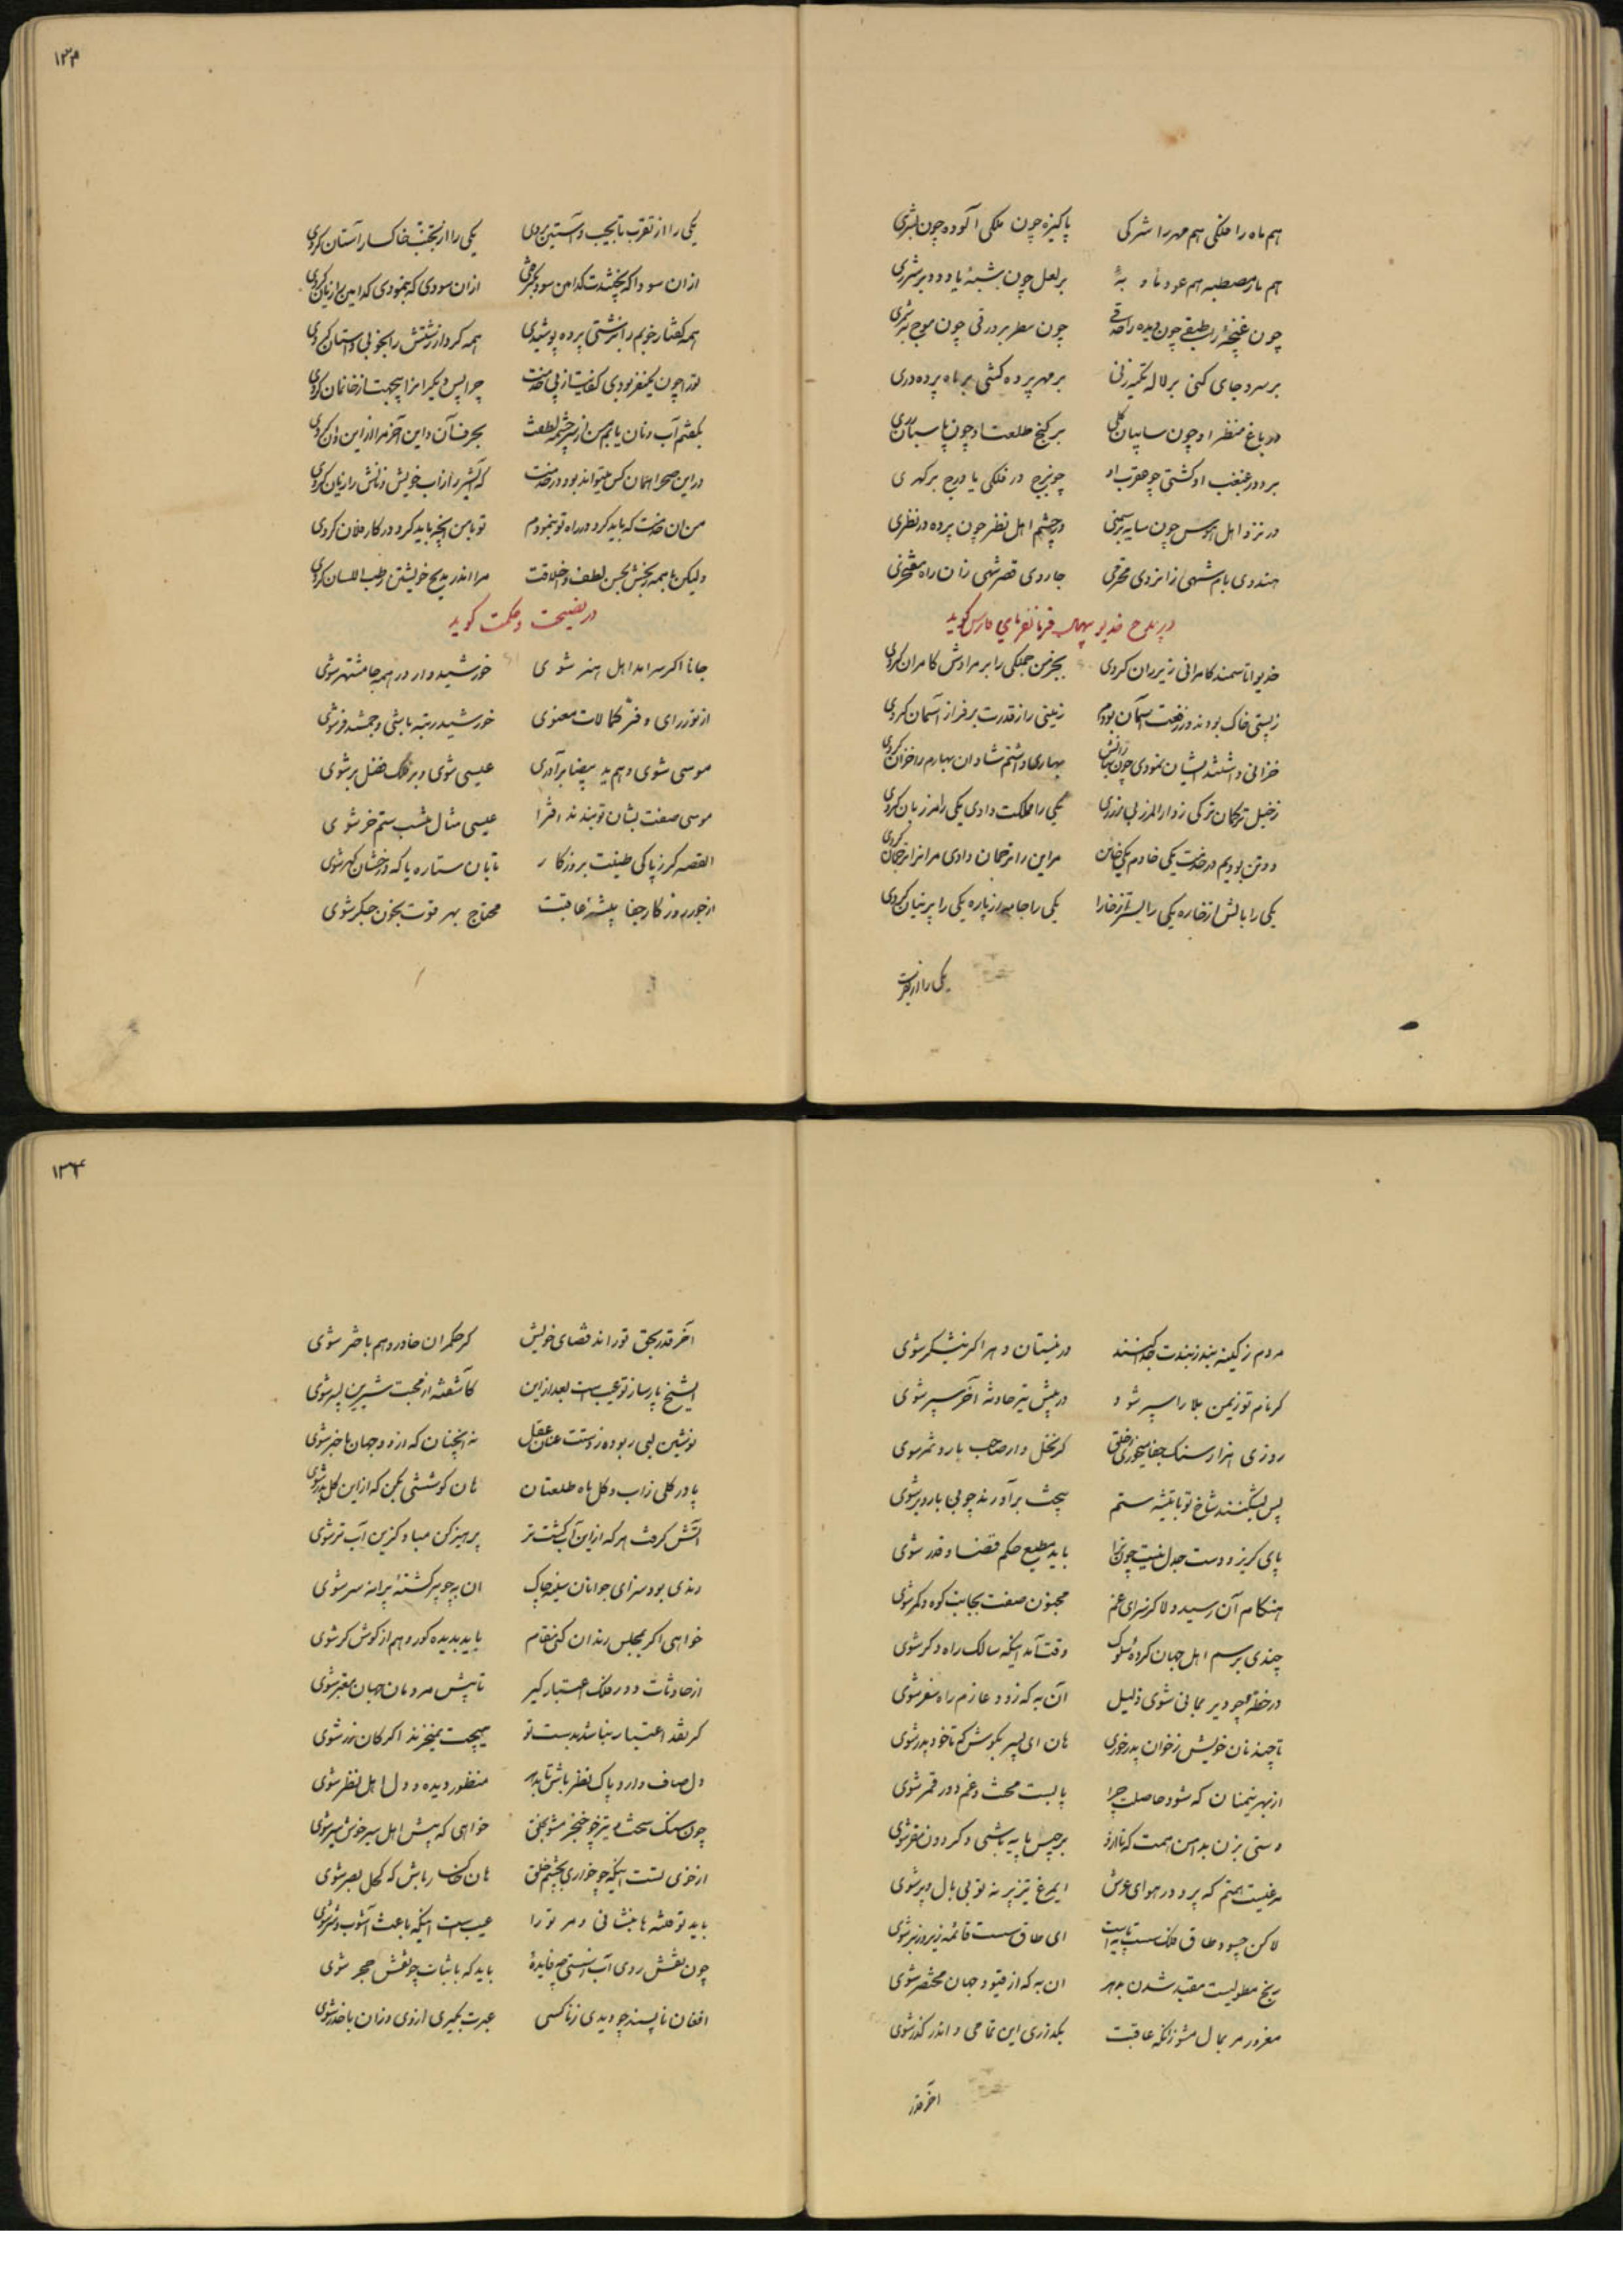 هم ماه را ملکی هم مهر را شرکی پاکیزه چون ملکی آلوده چون بشری
هم مصطبه هم عود بر لعل چون شبهٔ یا دود بر شرری
چون غنچهٔ طبقی چون دیده را چون سطر بر ورقی چون موج
بر سرو جای کنی بر لاله تکیه زنی بر مهر پرده کشی بر ماه پرده دری
در باغ منظر او چون سایبان گلی بر گنج طلعت او چون پاسبان
بر دور غبغب او گشتی چو عقرب او چو برج در فلکی یا درج بر گهری
در نزد اهل هوس چون سایه بر سمنی در چشم اهل نظر چون پرده در نظری
هندوی بام شهی زانروی محترمی جاروی قصر شهی زان راه مفتخری
در مدح خدیو فرمانفرمای فارس گوید
خدیوا تا سمند کامرانی زیر ران کردی بجز من جملگی را بر مرادش کامران کردی
ز پستی خاک بودند و ز رفعت آسمان بودم زمینی را ز قدرت بر فراز آسمان کردی
خزانی داشتند ایشان نمودی چون بهارانش بهاری داشتم شادان بهارم را خزان کردی
ز خیل ترکمان ترکی ز دار المرز بی مرزی یکی را مملکت دادی یکی را مرزبان کردی
دو تن بودیم در خدمت یکی خادم یکی خائن مر این را ترجمان دادی مر آنرا ترجمان کردی
یکی را بالش از خاره یکی را بستر از خارا یکی را جامه از پاره یکی را پرنیان کردی
یکی را از تقرب
۱۳۳
یکی را از تقرب تا بجیب و آستین بردی یکی را از تجنب خاکسار آستان کردی
ازان سودا که بخشیدت کدامین سود ازان سودی که ننمودی کدامین را زیان کردی
همه گفتار خوبم را بزشتی پرده پوشیدی همه کردار زشتش را بخوبی داستان کردی
ترا چون یکنفر بودی کفایت از پی خدمت چرا پس دیگر انرا بیجهت از خانمان کردی
بگفتم آب و نان یابم من از سرچشمه لطفت بحرف آن و این آخر مرا از این و آن کردی
در این صحرا همان کس میتواند بود در خدمت که از آب خویش و نانش را زیان کردی
من آن خدمت که باید کرد در راه تو بنمودم تو با من آنچه باید کرد در کار فلان کردی
ولیکن با همه رنجش بحسن لطف و اخلاقت مرا اندر مدیح خویشتن رطب اللسان کردی
در نصیحت و حکمت گوید
جانا اگر سرامد اهل هنر شوی خورشید وار در همه جا مشتهر شوی
از نور رای و فر کمالات معنوی خورشید رتبه باشی و جمشید فر شوی
موسی شوی و هم ید بیضا برآوری عیسی شوی و بر فلک فضل بر شوی
موسی صفت بشان تو بندند افترا عیسی مثال ستم خر شوی
القصه گر ز پاکی طینت بروزگار تابان ستاره یا که درخشان گهر شوی
از جور روزگار جفا پیشه عاقبت محتاج بهر قوت بخون جگر شوی
مردم ز کینه بند ز بندت جدا کنند در نیستان دهر اگر نیشکر شوی
گر نام تو زیمن بلا را سپر شود در پیش تیر حادثه آخر سپر شوی
روزی هزار سنک جفا میخوری ز خلق گر نخل وار صاحب بار و ثمر شوی
پس بشکنند شاخ تو با تیشه ستم بیخت برآورند چو بی بار و بر شوی
پای گریز و دست جدل نیست چون ترا باید مطیع حکم قضا و قدر شوی
هنگام آن رسید دلا کز سرای غم مجنون صفت بجانب کوه و کمر شوی
چندی برسم اهل جهان کردهٔ سلوک وقت آمد اینکه سالک راه دگر شوی
در خطهٔ چو دیر بمانی شوی ذلیل آن به که زود عازم راه سفر شوی
تا چند نان خویش ز خوان پدر خوری هان ای پسر بکوش که تا خود پدر شوی
از بهر نیم نان که شود حاصلت چرا پابست محنت و غم دور قمر شوی
دستی بزن بدامن همت که تا ازو برجیس پایه باشی و گردون مقر شوی
مرغیست همتم که پرد در هوای عرش ای مرغ تیز پر نه تو بی بال و پر شوی
لاکن چو طاق فلک سست پایه است ای طاق سست قائمه زیر و زبر شوی
رنج مطولیست مقید شدن بدهر ان به که از قیود جهان مختصر شوی
مغرور مر بمال مشو زانکه عاقبت بگذری این تمامی و اندر گذر شوی
آخر قدر
۱۳۴
آخر قدر بحق تو راند قضای خویش گر حکمران خاور و هم باختر شوی
ای شیخ پارسا ز تو عیب است بعد ازین کاشفته از محبت شیرین پسر شوی
نوشین لبی ربوده ز دستت عنان عقل نه آنچنان که از دو جهان با خبر شوی
پا در گلی ز آب و گل ماه طلعتان هان کوششی بکن که از این گل بدر شوی
آتش گرفت هر که از این آب گشت تر پرهیز کن مباد کزین آب تر شوی
رندی بود سزای جوانان سینه چاک ان به چو پیر گشتهٔ پیرانه سر شوی
خواهی اگر بمجلس رندان کنی مقام باید بدیده کور و هم از گوش کر شوی
از حادثات دور فلک اعتبار گیر تا پیش مردمان جهان معتبر شوی
گر نقد اعتبار نباشد بدست تو هیچت نمیخرند اگر کان زر شوی
دل صاف دار و پاک نظر باش تا بدهر منظور دیده و دل اهل نظر شوی
چون سنک سخت و تیز چو خنجر مشو بخلق خواهی که پیش اهل سیر خوش سیر شوی
از خوی تست اینکه چو خواری بچشم خلق هان خاکسار باش که کحل بصر شوی
باید تو فتنه ها بنشانی و مر ترا عیب است اینکه باعث آشوب و شر شوی
چون نقش روی آب ز سستی چه فایده باید که با ثبات چو نقش حجر شوی
افغان ناپسند چو دیدی ز ناکسی عبرت بگیری از وی و زان با حذر شوی